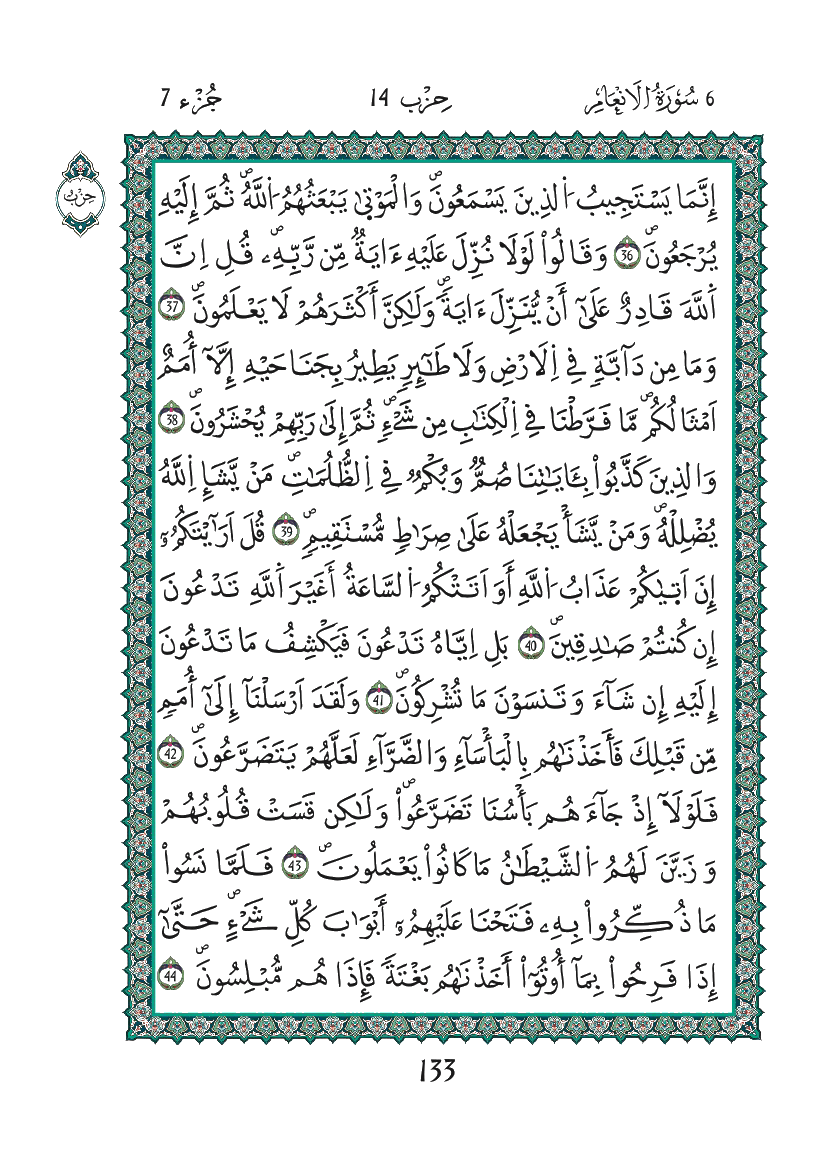 6 سُورَةُ الَانْعَامِ حِزْب 14 جُزْء 7
حِزْب
إِنَّمَا يَسْتَجِيبُ اَ۬لذِينَ يَسْمَعُونَۖ وَالْمَوْت۪يٰ يَبْعَثُهُمُ اُ۬للَّهُۖ ثُمَّ إِلَيْهِ
يُرْجَعُونَۖ 36 وَقَالُواْ لَوْلَا نُزِّلَ عَلَيْهِ ءَايَةٌ مِّن رَّبِّهِۦۖ قُلِ اِنَّ
اَ۬للَّهَ قَادِرٌ عَلَىٰٓ أَنْ يُّنَزِّلَ ءَايَةٗۖ وَلَٰكِنَّ أَكْثَرَهُمْ لَا يَعْلَمُونَۖ 37
وَمَا مِن دَآبَّةٖ فِے اِ۬لَارْضِ وَلَا طَٰٓئِرٖ يَطِيرُ بِجَنَاحَيْهِ إِلَّآ أُمَمٌ
اَمْثَالُكُمۖ مَّا فَرَّطْنَا فِے اِ۬لْكِتَٰبِ مِن شَےْءٖۖ ثُمَّ إِلَىٰ رَبِّهِمْ يُحْشَرُونَۖ 38
وَالذِينَ كَذَّبُواْ بِـَٔايَٰتِنَا صُمّٞ وَبُكْمٞ فِے اِ۬لظُّلُمَٰتِۖ مَنْ يَّشَإِ اِ۬للَّهُ
يُضْلِلْهُۖ وَمَنْ يَّشَأْ يَجْعَلْهُ عَلَىٰ صِرَٰطٖ مُّسْتَقِيمٖۖ 39 قُلَ اَرَٰٓيْتَكُمُۥٓ
إِنَ اَت۪يٰكُمْ عَذَابُ اُ۬للَّهِ أَوَ اَتَتْكُمُ اُ۬لسَّاعَةُ أَغَيْرَ اَ۬للَّهِ تَدْعُونَ
إِن كُنتُمْ صَٰدِقِينَۖ 40 بَلِ اِيَّاهُ تَدْعُونَ فَيَكْشِفُ مَا تَدْعُونَ
إِلَيْهِ إِن شَآءَ وَتَنسَوْنَ مَا تُشْرِكُونَۖ 41 وَلَقَدَ اَرْسَلْنَآ إِلَىٰٓ أُمَمٖ
مِّن قَبْلِكَ فَأَخَذْنَٰهُم بِالْبَأْسَآءِ وَالضَّرَّآءِ لَعَلَّهُمْ يَتَضَرَّعُونَۖ 42
فَلَوْلَآ إِذْ جَآءَهُم بَأْسُنَا تَضَرَّعُواْۖ وَلَٰكِن قَسَتْ قُلُوبُهُمْ
وَزَيَّنَ لَهُمُ اُ۬لشَّيْطَٰنُ مَا كَانُواْ يَعْمَلُونَۖ 43 فَلَمَّا نَسُواْ
مَا ذُكِّرُواْ بِهِۦ فَتَحْنَا عَلَيْهِمُۥٓ أَبْوَٰبَ كُلِّ شَےْءٍۖ حَتَّىٰٓ
إِذَا فَرِحُواْ بِمَآ أُوتُوٓاْ أَخَذْنَٰهُم بَغْتَةٗ فَإِذَا هُم مُّبْلِسُونَۖ 44
133